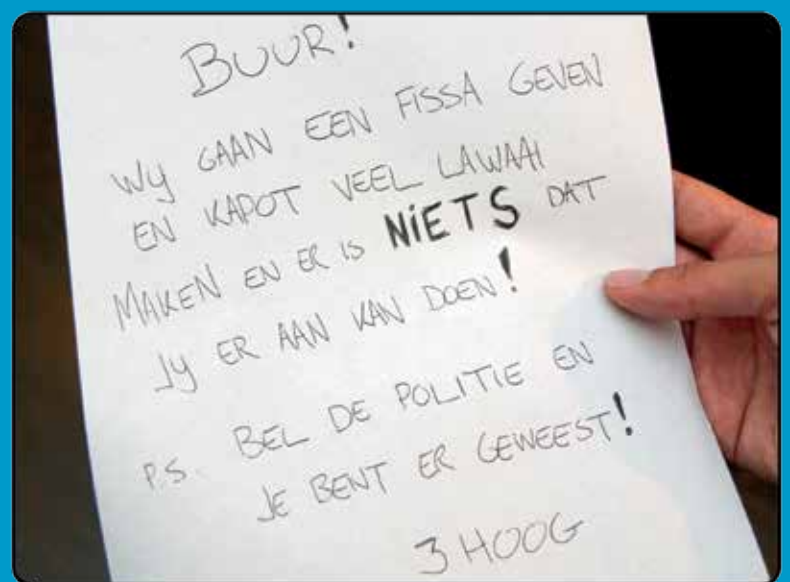 BUUR!
WIJ GAAN EEN FISSA GEVEN
EN KAPOT VEEL LAWAAI
MAKEN EN ER IS NIETS DAT
JIJ ER AAN KAN DOEN!
P.S. BEL DE POLITIE EN
JE BENT ER GEWEEST!
3 HOOG